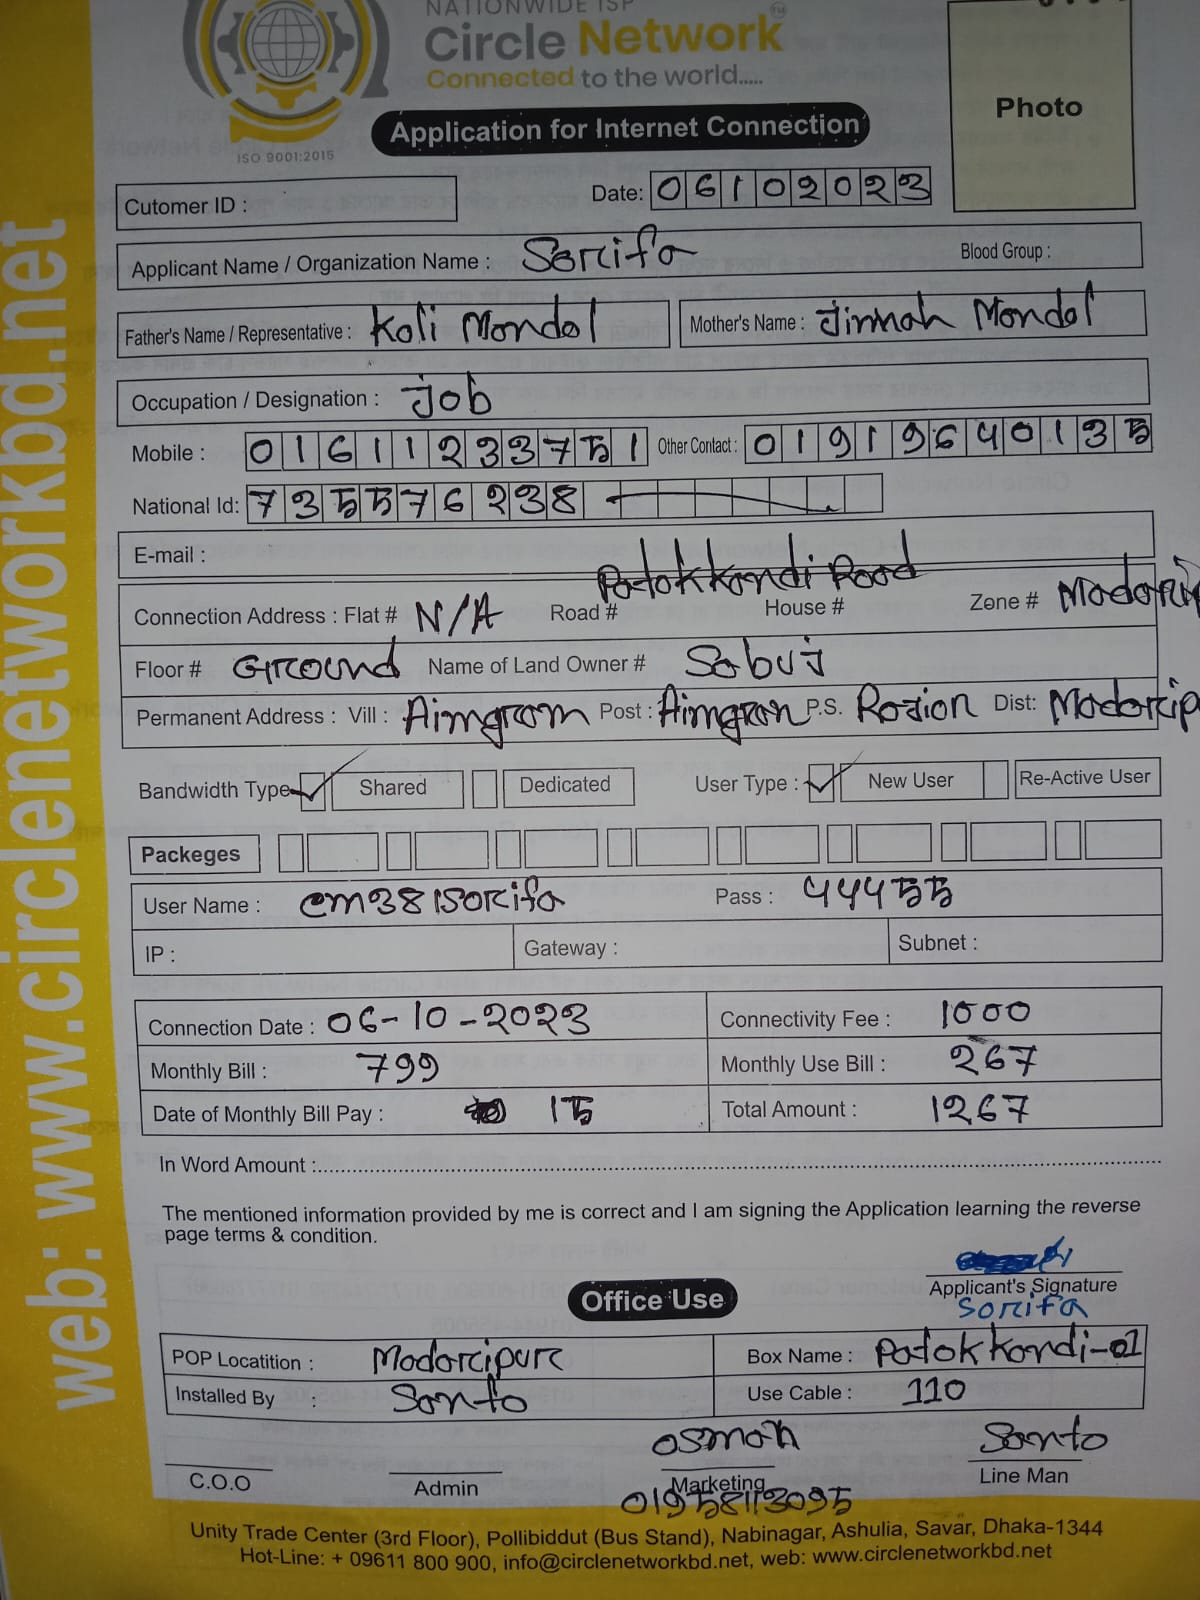 NATIONWIDE ISP
Circle Network
TM
Connected to the world.....
ISO 9001:2015
Application for Internet Connection
Photo
Cutomer ID :
Date: 06102023
Applicant Name / Organization Name : Sorifa Blood Group :
Father's Name / Representative : Koli Mondol Mother's Name : Jinnah Mondol
Occupation / Designation : Job
Mobile : 01611233751 Other Contact : 01919640135
National Id: 7355762 38
E-mail :
Connection Address : Flat # N/A Road # Patokkandi Road House # Zone # Modari
Floor # Ground Name of Land Owner # Sobuj
Permanent Address : Vill : Aimgram Post : Aimgram P.S. Rojion Dist: Madarip
Bandwidth Type Shared Dedicated User Type : New User Re-Active User
Packeges
User Name : cm381sorifa Pass : 44455
IP : Gateway : Subnet :
Connection Date : 06-10-2023 Connectivity Fee : 1000
Monthly Bill : 799 Monthly Use Bill : 267
Date of Monthly Bill Pay : 15 Total Amount : 1267
In Word Amount :
The mentioned information provided by me is correct and I am signing the Application learning the reverse
page terms & condition.
Applicant's Signature
Sorifa
Office Use
POP Locatition : Modaripur Box Name : Patokkandi-01
Installed By : Santo Use Cable : 110
Osman Santo
C.O.O Admin Marketing Line Man
01958113095
Unity Trade Center (3rd Floor), Pollibiddut (Bus Stand), Nabinagar, Ashulia, Savar, Dhaka-1344
Hot-Line: + 09611 800 900, info@circlenetworkbd.net, web: www.circlenetworkbd.net
web: www.circlenetworkbd.net